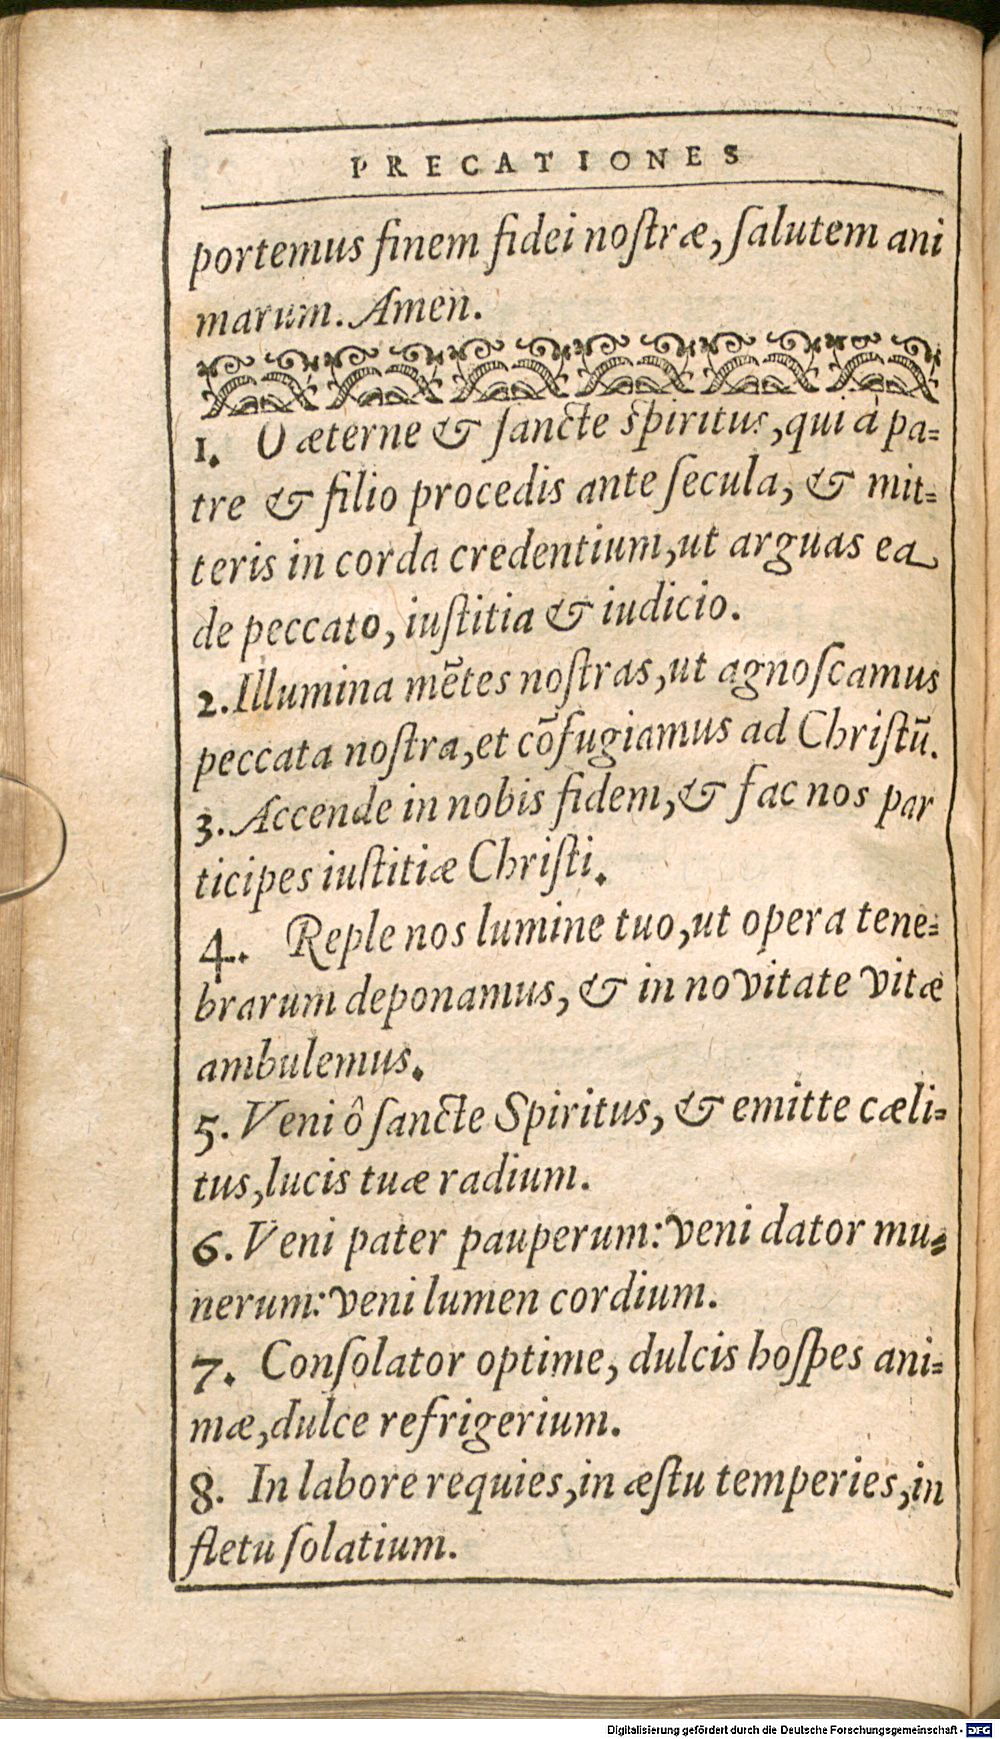 PRECATIONES
portemus finem fidei noſtræ, ſalutem ani
marum. Amen.
1. O æterne & ſancte ſpiritus, qui à pa=
tre & filio procedis ante ſecula, & mit=
teris in corda credentium, ut arguas ea
de peccato, iuſtitia & iudicio.
2. Illumina mẽtes noſtras, ut agnoſcamus
peccata noſtra, et cõfugiamus ad Chriſtũ.
3. Accende in nobis fidem, & fac nos par
ticipes iuſtitiæ Chriſti.
4. Reple nos lumine tuo, ut opera tene=
brarum deponamus, & in novitate vitæ
ambulemus.
5. Veni ô ſancte Spiritus, & emitte cæli=
tus, lucis tuæ radium.
6. Veni pater pauperum: veni dator mu=
nerum: veni lumen cordium.
7. Conſolator optime, dulcis hoſpes ani=
mæ, dulce refrigerium.
8. In labore requies, in æſtu temperies, in
fletu ſolatium.
Digitalisierung gefördert durch die Deutsche Forschungsgemeinschaft - DFG